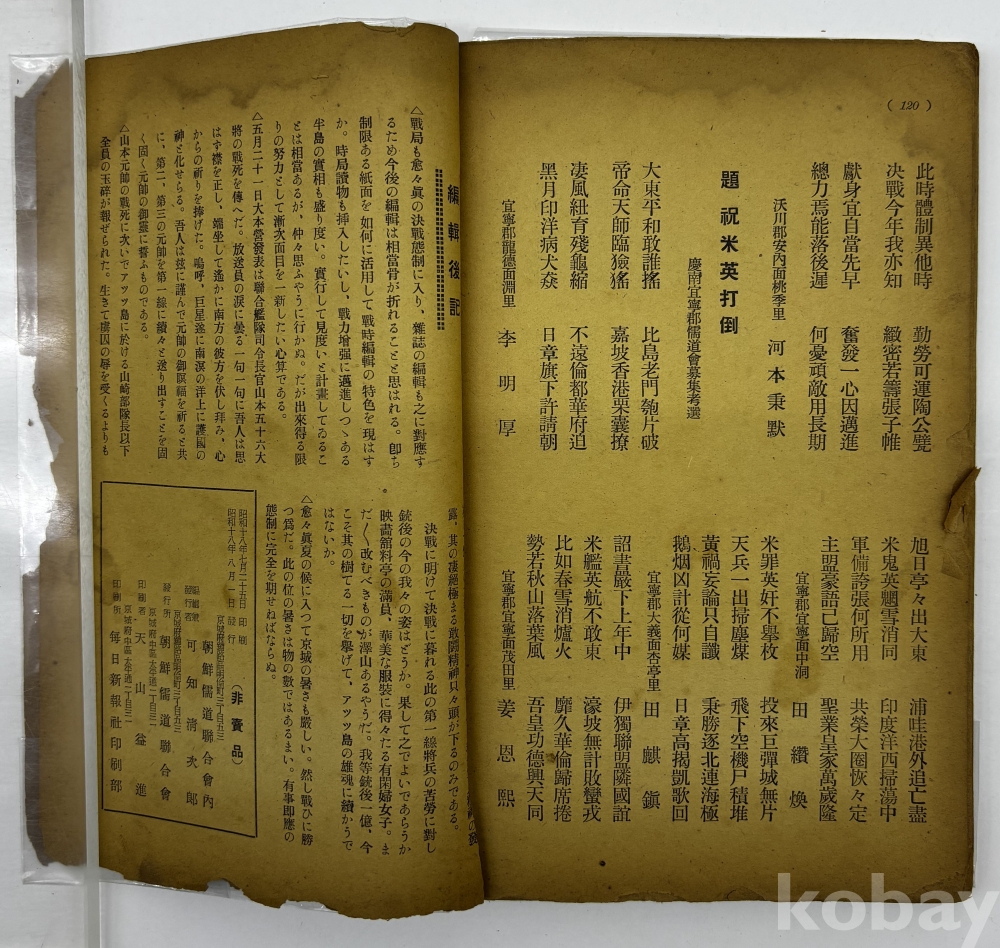 ( 120 )
此時體制異他時 勤勞可運陶公甓
決戰今年我亦知 緻密若籌張子帷
獻身宜自當先早 奮發一心因邁進
總力焉能落後遲 何憂頑敵用長期
沃川郡安內面桃季里 河本秉默
題祝米英打倒
慶南宜寧郡儒道會募集考選
大東平和敢誰搖 比島老門匏片破
帝命天師臨獫猺 嘉坡香港栗囊撩
凄風紐育殘龜縮 不遠倫都華府迫
黑月印洋病犬猋 日章旗下許請朝
宜寧郡龍德面淵里 李明厚
旭日亭々出大東 浦哇港外追亡盡
米鬼英魍雪消同 印度洋西掃蕩中
軍備誇張何所用 共榮大圈恢々定
主盟豪語己歸空 聖業皇家萬歲隆
宜寧郡宜寧面中洞 田纘煥
米罪英奸不擧枚 投來巨彈城無片
天兵一出掃塵煤 飛下空機尸積堆
黃禍妄論只自讖 秉勝逐北連海極
鵝烟凶計從何媒 日章高揭凱歌回
宜寧郡大義面杏亭里 田麒鎭
詔書嚴下上年中 伊獨聯盟隣國誼
米艦英航不敢東 濠坡無計敗蠻戎
比如春雪消爐火 靡久華倫歸席捲
勢若秋山落葉風 吾皇功德興天同
宜寧郡宜寧面茂田里 姜恩熙
編輯後記
△戰局も愈々眞の決戰態制に入り、雜誌の編輯も之に對應す
るため今後の編輯は相當骨が折れることと思はれる。卽ち
制限ある紙面を如何に活用して戰時編輯の特色を現はす
か。時局讀物も挿入したいし、戰力增强に邁進しつゝある
半島の實相も盛り度い。實行して見度いと計畫してゐるこ
とは相當あるが、仲々思ふやうに行かぬ。だが出來得る限
りの努力として漸次面目を一新したい心算である。
△五月二十一日大本營發表は聯合艦隊司令長官山本五十六大
將の戰死を傳へた。放送員の淚に曇る一句一句に吾人は思
はず襟を正し、端坐して遙かに南方の彼方を伏し拜み、心
からの祈りを捧げた。嗚呼、巨星遂に南溟の洋上に護國の
神と化せらる。吾人は玆に謹んで元帥の御冥福を祈ると共
に、第二、第三の元帥を第一線に續々と送り出すことを固
く固く元帥の御靈に誓ふものである。
△山本元帥の戰死に次いでアッツ島に於ける山崎部隊長以下
全員の玉碎が報ぜられた。生きて虜囚の辱を受くるよりも
露、其の凄絕極まる敢鬪精神只々頭が下るのみである。
決戰に明けて決戰に暮れる此の第一線將兵の苦勞に對し
銃後の今の我々の姿はどうか。果して之でよいであらうか
映畵舘料亭の滿員、華美な服裝に得々たる有閑婦女子。ま
だ〱改むべきものが澤山あるやうだ。我等銃後一億、今
こそ其の樹てる一切を擧げて、アッツ島の雄魂に續かうで
はないか。
△愈々眞夏の候に入つて京城の暑さも嚴しい。然し戰ひに勝
つ爲だ。此の位の暑さは物の數ではあるまい。有事卽應の
態制に完全を期せねばならぬ。
昭和十八年七月二十五日印刷
昭和十八年八月一日發行 (非賣品)
京城府鍾路區明倫町三丁目五三
朝鮮儒道聯合會內
編輯兼發行者 可知淸次郎
京城府鍾路區明倫町三丁目五三
發行所 朝鮮儒道聯合會
京城府中區太平通二丁目三一
印刷者 天山益進
京城府中區太平通二丁目三一
印刷所 每日新報社印刷部
kobay